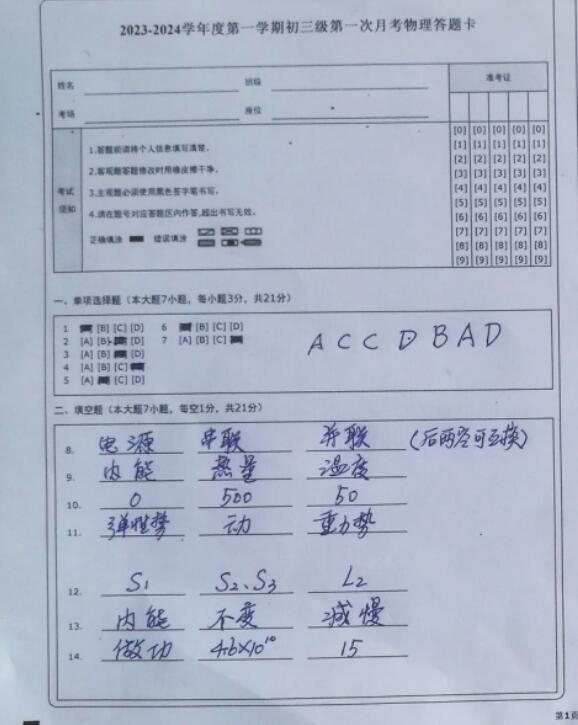 2023-2024学年度第一学期初三级第一次月考物理答题卡
姓名 班级 准考证
考场 座位
[0] [0] [0] [0] [0]
[1] [1] [1] [1] [1]
[2] [2] [2] [2] [2]
[3] [3] [3] [3] [3]
[4] [4] [4] [4] [4]
[5] [5] [5] [5] [5]
[6] [6] [6] [6] [6]
[7] [7] [7] [7] [7]
[8] [8] [8] [8] [8]
[9] [9] [9] [9] [9]
考试须知
1.答题前请将个人信息填写清楚。
2.客观题答题修改时用橡皮擦干净。
3.主观题必须使用黑色签字笔书写。
4.请在题号对应答题区内作答,超出书写无效。
正确填涂 错误填涂
一、单项选择题（本大题7小题，每小题3分，共21分）
1 [B] [C] [D] 6 [B] [C] [D]
2 [A] [B] [D] 7 [A] [B] [C]
3 [A] [B] [D]
4 [A] [B] [C]
5 [A] [C] [D]
A C C D B A D
二、填空题（本大题7小题，每空1分，共21分）
8. 电源 串联 并联 (后两空可互换)
9. 内能 热量 温度
10. 0 500 50
11. 弹性势 动 重力势
12. S1 S2、S3 L2
13. 内能 不变 减慢
14. 做功 4.6×10¹⁰ 15
第1页